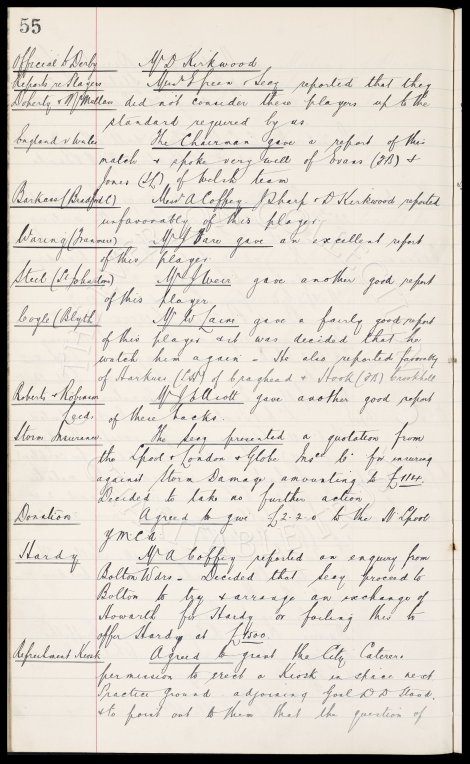 55
Official to Derby Mr D Kirkwood
Reports re Players Messrs Green & Secy reported that they
Doherty & McMillan did not consider these players up to the
standard required by us
England v Wales The Chairman gave a report of this
match & spoke very well of Evans (FB) &
Jones (IL) of Welsh team
Barkas (Bradford C) Messrs A Coffey J Sharp & D Kirkwood reported
unfavourably of this player
Waring (Tranmere) Mr gave an excellent report
of this player
Steel (St Johnstone) Mr J Weir gave another good report
of this player
Coyle (Blyth) Mr W gave a fairly good report
of this player & it was decided that he
watch him again - He also reported favourably
of Harkus of Craghead & Hook (FB) Crookhill
Roberts & Robinson Mr J Elliott gave another good report
Leeds of these backs.
Storm Insurance The Secy presented a quotation from
the Lpool & London & Globe Insce Co for insuring
against Storm Damage amounting to £114.
Decided to take no further action
Donation Agreed to give £2.2.0 to the N. Lpool
YMCA
Hardy Mr A Coffey reported an enquiry from
Bolton Wdrs - Decided that Secy proceed to
Bolton to try & arrange an exchange of
Howarth for Hardy or failing this to
offer Hardy at £4500
Refreshment Kiosk Agreed to grant the City Caterers
permission to erect a Kiosk in space next
Practice Ground adjoining Goal D D Stand,
& to point out to them that the question of